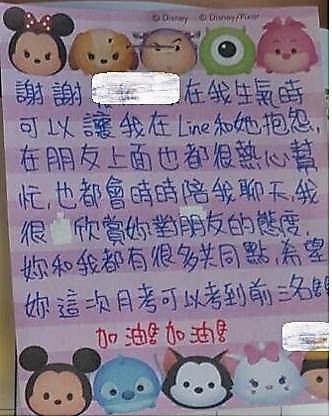 © Disney © Disney/Pixar
謝謝 在我生氣時
可以讓我在Line和她抱怨,
在朋友上面也都很熱心幫
忙,也都會時時陪我聊天,我
很 欣賞妳對朋友的態度,
妳和我都有很多共同點,希望
妳這次月考可以考到前三名!!
加油!! 加油!!